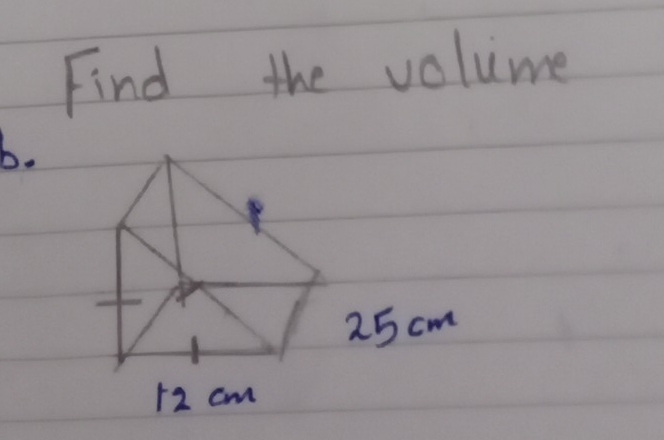 Find the volume
b.
25 cm
12 cm